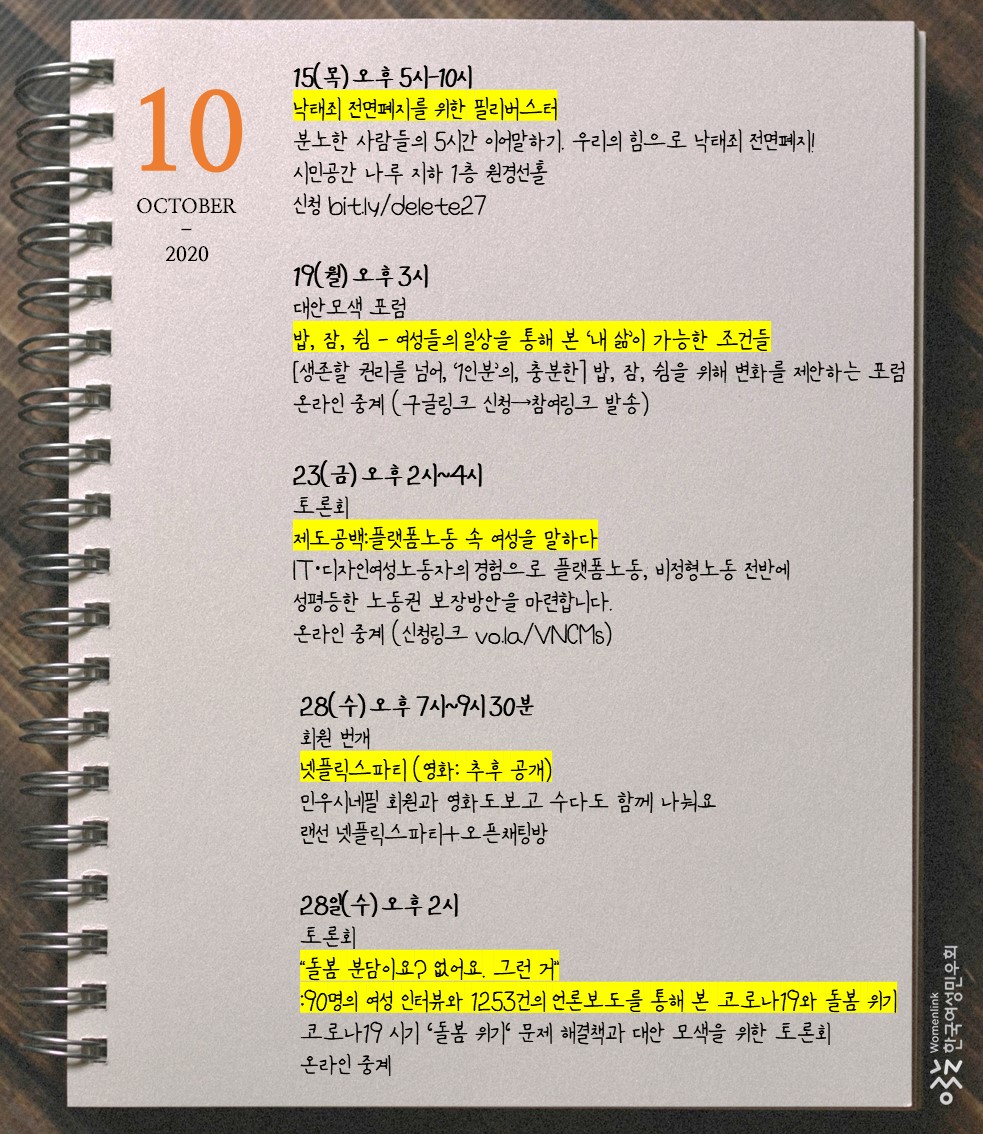 10
OCTOBER
-
2020
15(목) 오후 5시-10시
낙태죄 전면폐지를 위한 필리버스터
분노한 사람들의 5시간 이어말하기. 우리의 힘으로 낙태죄 전면폐지!
시민공간 나루 지하 1층 원경선홀
신청 bit.ly/delete27
19(월) 오후 3시
대안모색 포럼
밥, 잠, 쉼 - 여성들의 일상을 통해 본 '내 삶'이 가능한 조건들
[생존할 권리를 넘어, '1인분'의, 충분한] 밥, 잠, 쉼을 위해 변화를 제안하는 포럼
온라인 중계 (구글링크 신청→참여링크 발송)
23(금) 오후 2시~4시
토론회
제도공백:플랫폼노동 속 여성을 말하다
IT·디자인여성노동자의 경험으로 플랫폼노동, 비정형노동 전반에
성평등한 노동권 보장방안을 마련합니다.
온라인 중계 (신청링크 vo.la/VNCMs)
28(수) 오후 7시~9시 30분
회원 번개
넷플릭스파티 (영화: 추후 공개)
민우시네필 회원과 영화도보고 수다도 함께 나눠요
랜선 넷플릭스파티+오픈채팅방
28일(수) 오후 2시
토론회
"돌봄 분담이요? 없어요. 그런 거"
:90명의 여성 인터뷰와 1253건의 언론보도를 통해 본 코로나19와 돌봄 위기
코로나19 시기 '돌봄 위기' 문제 해결책과 대안 모색을 위한 토론회
온라인 중계
Womenlink
한국여성민우회